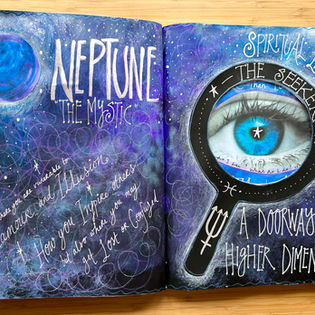 NEPTUNE
"THE MYSTIC"
where you are vulnerable to
Glamour and Illusion
How you Inspire others
but also where you may
get Lost or Confused
SPIRITUAL
— THE SEEKER
A DOORWAY
HIGHER DIMEN